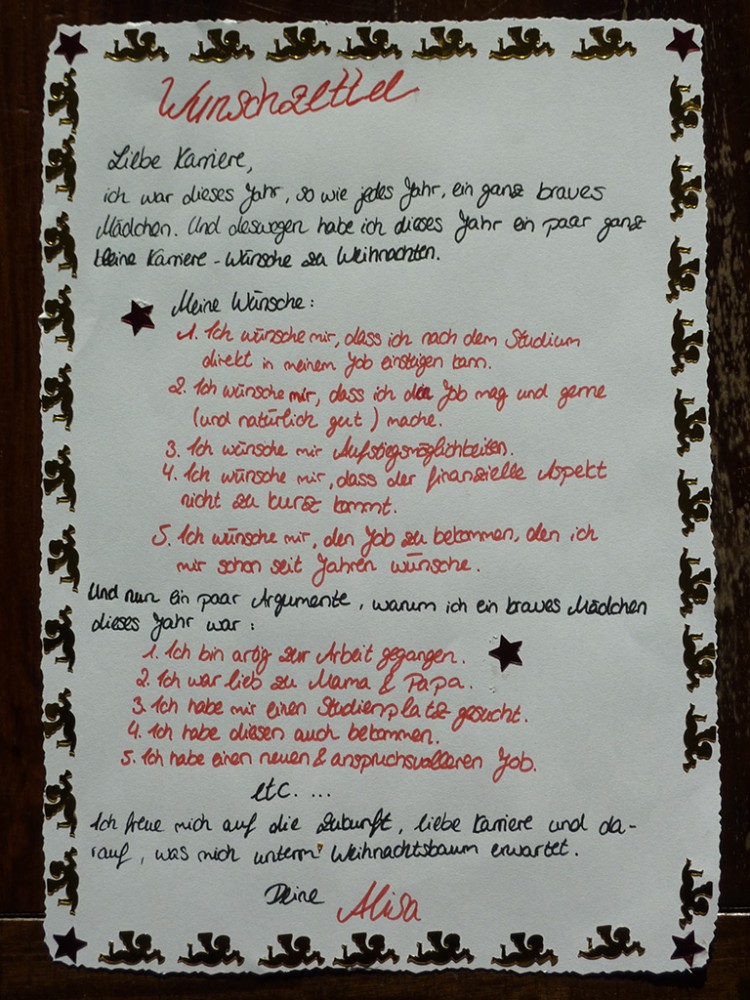 Wunschzettel
Liebe Karriere,
ich war dieses Jahr, so wie jedes Jahr, ein ganz braves
Mädchen. Und deswegen habe ich dieses Jahr ein paar ganz
kleine Karriere-Wünsche zu Weihnachten.
Meine Wünsche:
1. Ich wünsche mir, dass ich nach dem Studium
direkt in meinem Job einsteigen kann.
2. Ich wünsche mir, dass ich den Job mag und gerne
(und natürlich gut) mache.
3. Ich wünsche mir Aufstiegsmöglichkeiten.
4. Ich wünsche mir, dass der finanzielle Aspekt
nicht zu kurz kommt.
5. Ich wünsche mir, den Job zu bekommen, den ich
mir schon seit Jahren wünsche.
Und nun ein paar Argumente, warum ich ein braves Mädchen
dieses Jahr war:
1. Ich bin artig zur Arbeit gegangen.
2. Ich war lieb zu Mama & Papa.
3. Ich habe mir einen Studienplatz gesucht.
4. Ich habe diesen auch bekommen.
5. Ich habe einen neuen & anspruchsvolleren Job.
etc. ...
Ich freue mich auf die Zukunft, liebe Karriere und da-
rauf, was mich unterm Weihnachtsbaum erwartet.
Deine Alisa